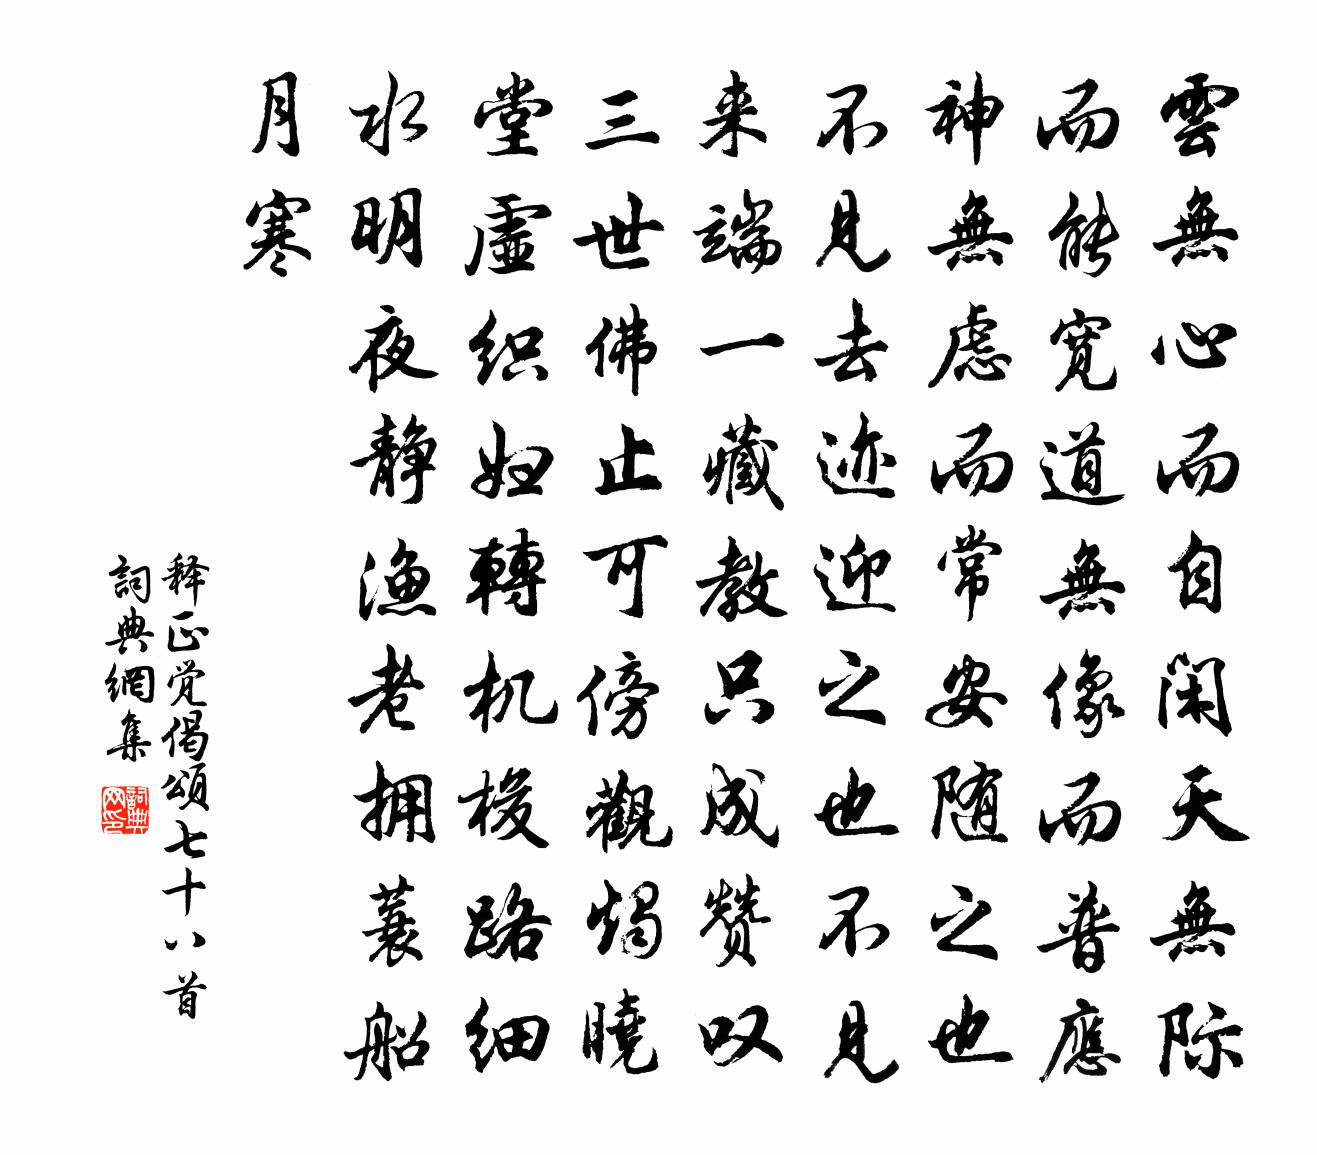 雲無心而自闲天無际
而能寬道無像而普應
神無慮而常安随之也
不見去迹迎之也不見
来端一藏教只成赞叹
三世佛止可傍觀燭曉
堂虛织妇轉机梭路细
水明夜静渔老拥蓑船
月寒
释正觉偈頌七十八首
詞典網集
詞典网印